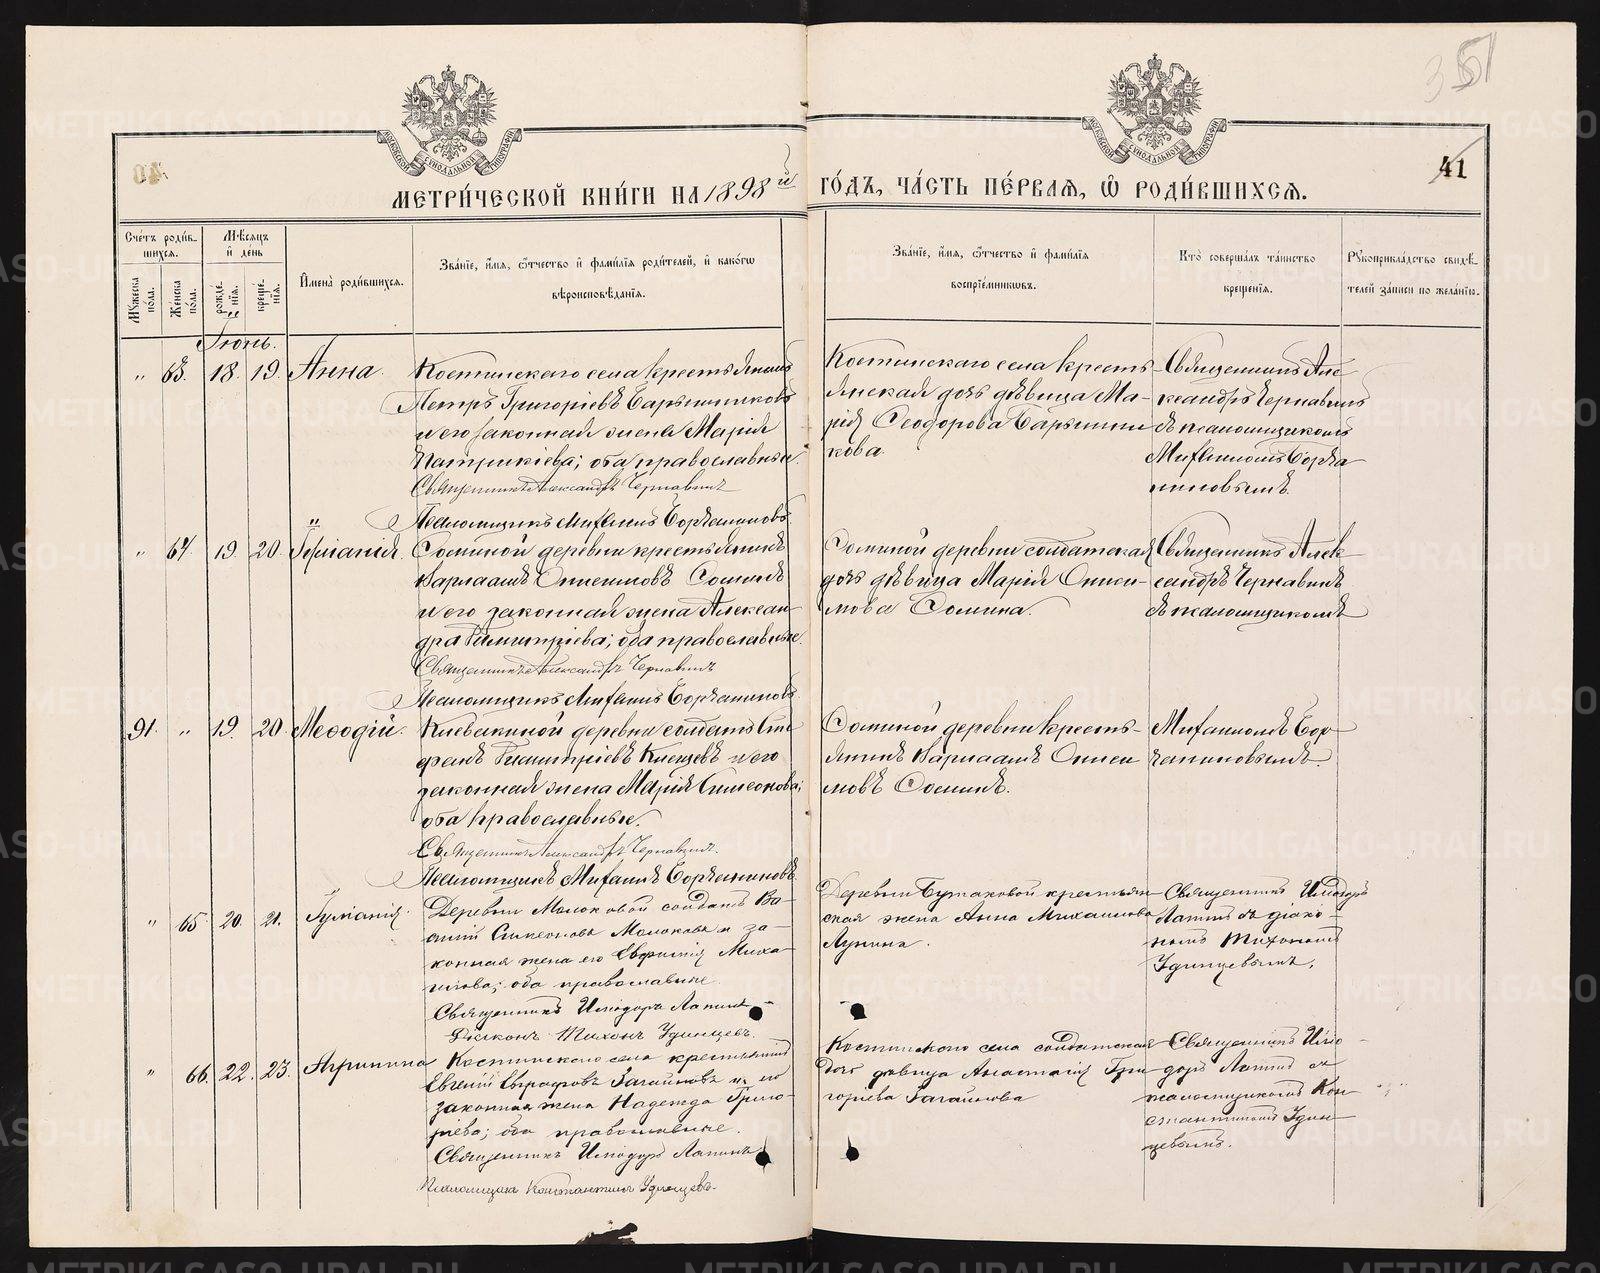 351
41
МЕТРИ́ЧЕСКОЙ КНИ́ГИ НА 1898 й
ГО́ДЪ, ЧА́СТЬ ПЕ́РВАѦ, Ѡ҆ РОДИ́ВШИХСѦ.
Сче́тъ роди́в-
шихсѧ.
Мꙋ́жеска
по́ла.
Же́нска
по́ла.
Мѣ́сѧцъ
и҆ де́нь
рожде́-
нїѧ.
креще́-
нїѧ.
И҆мена̀ роди́вшихсѧ.
Зва́нїе, и҆́мѧ, ѻ҆́тчество и҆ фами́лїѧ роди́телей, и҆ како́гѡ
вѣроисповѣ́данїѧ.
Зва́нїе, и҆́мѧ, ѻ҆́тчество и҆ фами́лїѧ
воспрїе́мникѡвъ.
Кто̀ соверша́лъ та́инство
креще́нїѧ.
Рꙋкоприкла́дство свидѣ́-
телей за́писи по жела́нїю.
Іюнь.
" 63. 18. 19. Анна.
Костинскаго села крестьянинъ
Петръ Григоріевъ Барышниковъ
и его законная жена Марія
Патрикіева; оба православные.
Священникъ Александръ Чернавинъ
Псаломщикъ Михаилъ
Костинскаго села кресть-
янская дочь дѣвица Ма-
рія Ѳеодорова Барышни-
кова.
Священникъ Але-
ксандръ Чернавинъ
съ псаломщикомъ
Михаиломъ
" 64. 19 20. 
Соминой деревни крестьянинъ
Варлаамъ Онисимовъ Соминъ
и его законная жена Алексан-
дра Димитріева; оба православные.
Священникъ Александръ Чернавинъ
Псаломщикъ Михаилъ
Соминой деревни солдатская
дочь дѣвица Марія Ониси-
мова Сомина.
Священникъ Алек-
сандръ Чернавинъ
съ псаломщикомъ
91. " 19. 20. Меѳодій.
деревни солдатъ Сте-
фанъ Димитріевъ и его
законная жена Марія Симеонова;
оба православные.
Священникъ Александръ Чернавинъ.
Псаломщикъ Михаилъ
Соминой деревни кресть-
янинъ Варлаамъ Ониси-
мовъ Соминъ.
Михаиломъ
" 65. 20. 21. Гуліанія.
Деревни Молоковой солдатъ Ва-
силій Симеоновъ Молоковъ и за-
конная жена его Евфимія Миха-
илова; оба православные.
Священникъ Исидоръ Лапинъ
Діаконъ Тихонъ Удинцевъ.
Деревни Бунаковой крестьян-
ская жена Анна Михаилова
Лунина.
Священникъ Исидоръ
Лапинъ съ діако-
номъ Тихономъ
Удинцевымъ.
" 66. 22. 23. Агрипина
Костинскаго села крестьянинъ
Евгеній Евграфовъ Загайновъ и его
законная жена Надежда Григо-
рьева; оба православные.
Священникъ Исидоръ Лапинъ
Псаломщикъ Константинъ Удинцевъ.
Костинскаго села солдатская
дочь дѣвица Анастасія Гри-
горіева Загайнова
Священникъ Исидо-
доръ Лапинъ съ
псаломщикомъ Кон-
стантиномъ Удин-
цевымъ.